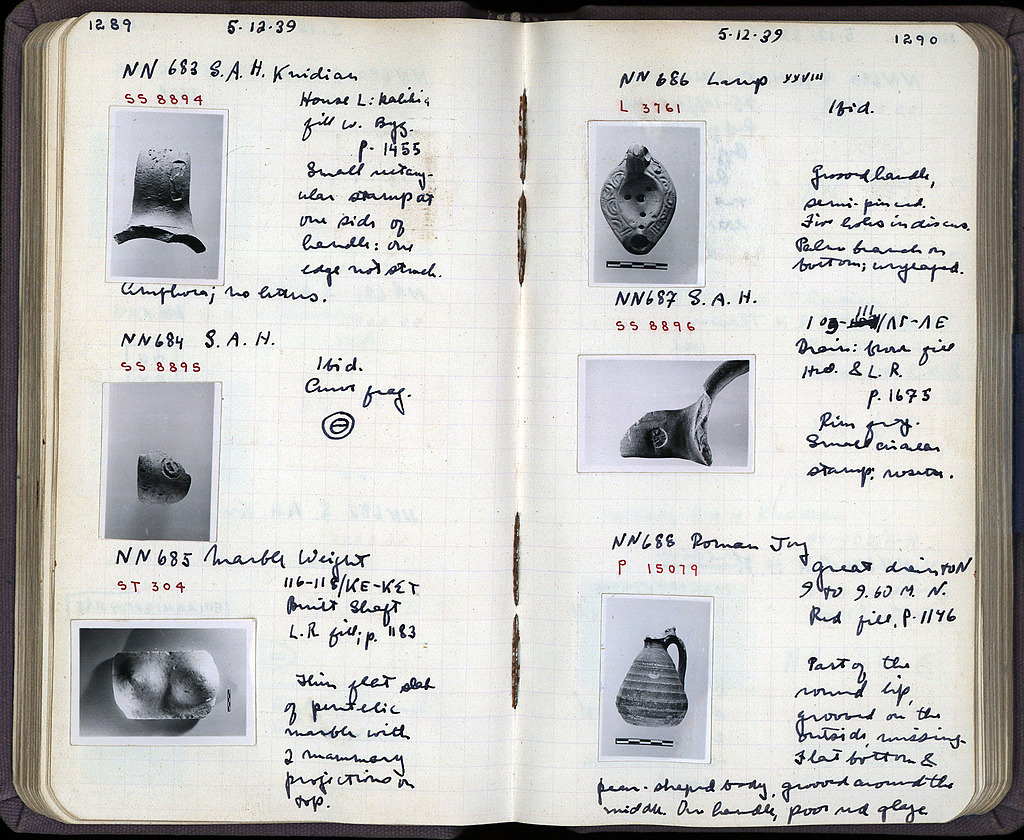 1289
5-12-39
NN 683 S.A.H. Knidian
SS 8894
House L:
fill w. Byz.
p. 1455
Small rectang-
ular stamp at
one side of
handle: one
edge not struck.
Amphora; no letters.
NN684 S.A.H.
SS 8895
Ibid.
Curve frag.
NN 685 Marble Weight
ST 304
116-118/ΚΕ-ΚΣΤ
Built Shaft
L.R. fill; p. 1183
Thin flat slab
of pentelic
marble with
2 mammary
projections on
top.
5-12-39
1290
NN 686 Lamp XXVIII
L 3761
Ibid.
Grooved handle,
semi-pierced.
Five holes in discus.
Palm branch on
bottom; unglazed.
NN687 S.A.H.
SS 8896
/ΛΓ-ΛΕ
Drain: from fill
Hd. & L.R.
p. 1675
Rim frag.
Small circular
stamp; rosette.
NN688 Roman Jug
P 15079
Great drain
9 to 9.60 M. N.
Red fill, P. 1146
Part of the
round lip,
grooved on the
outside, missing.
Flat bottom &
pear-shaped body, grooved around the
middle. One handle, poor red glaze